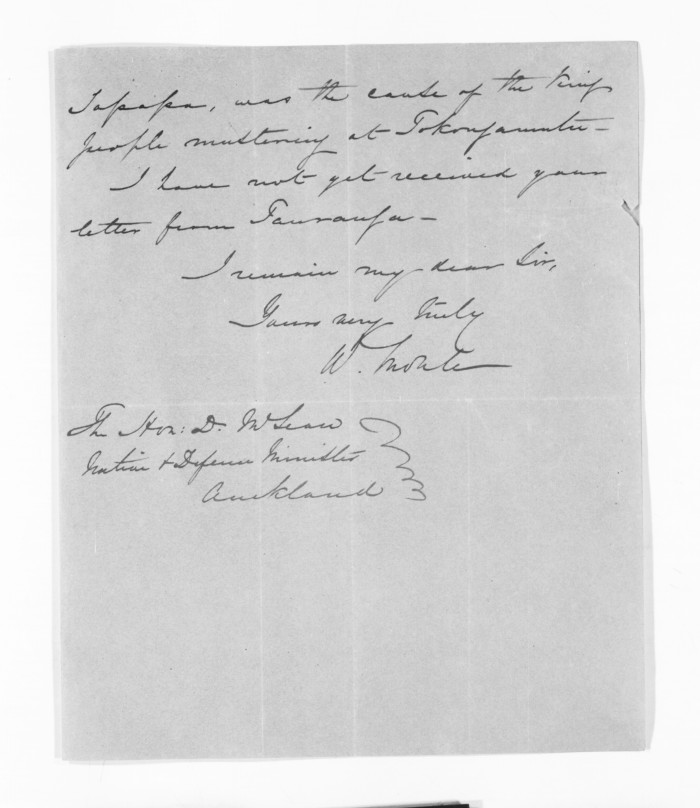 Tapapa, was the cause of the King
people mustering at Tokangamutu -
I have not yet received your
letter from Tauranga -
I remain my dear Sir,
Yours very truly
W.
The Hon: D. McLean
Native & Defence Minister
Auckland